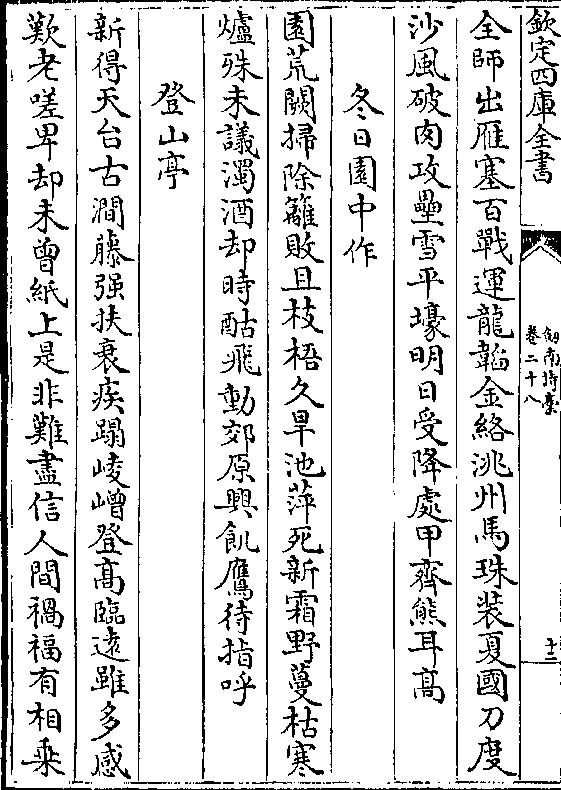 欽定四庫全書
劍南詩稾
卷二十八
十三
全師出雁塞百戰運龍韜金絡洮州馬珠装夏國刀度
沙風破肉攻壘雪平壕明日受降處甲齊熊耳高
冬日園中作
園荒闕掃除籬敗且枝梧久旱池萍死新霜野蔓枯寒
爐殊未議濁酒却時酤飛動郊原興飢鷹待指呼
登山亭
新得天台古澗藤强扶衰疾蹋崚嶒登高臨逺雖多感
歎老嗟卑却未曾紙上是非難盡信人間禍福有相乗